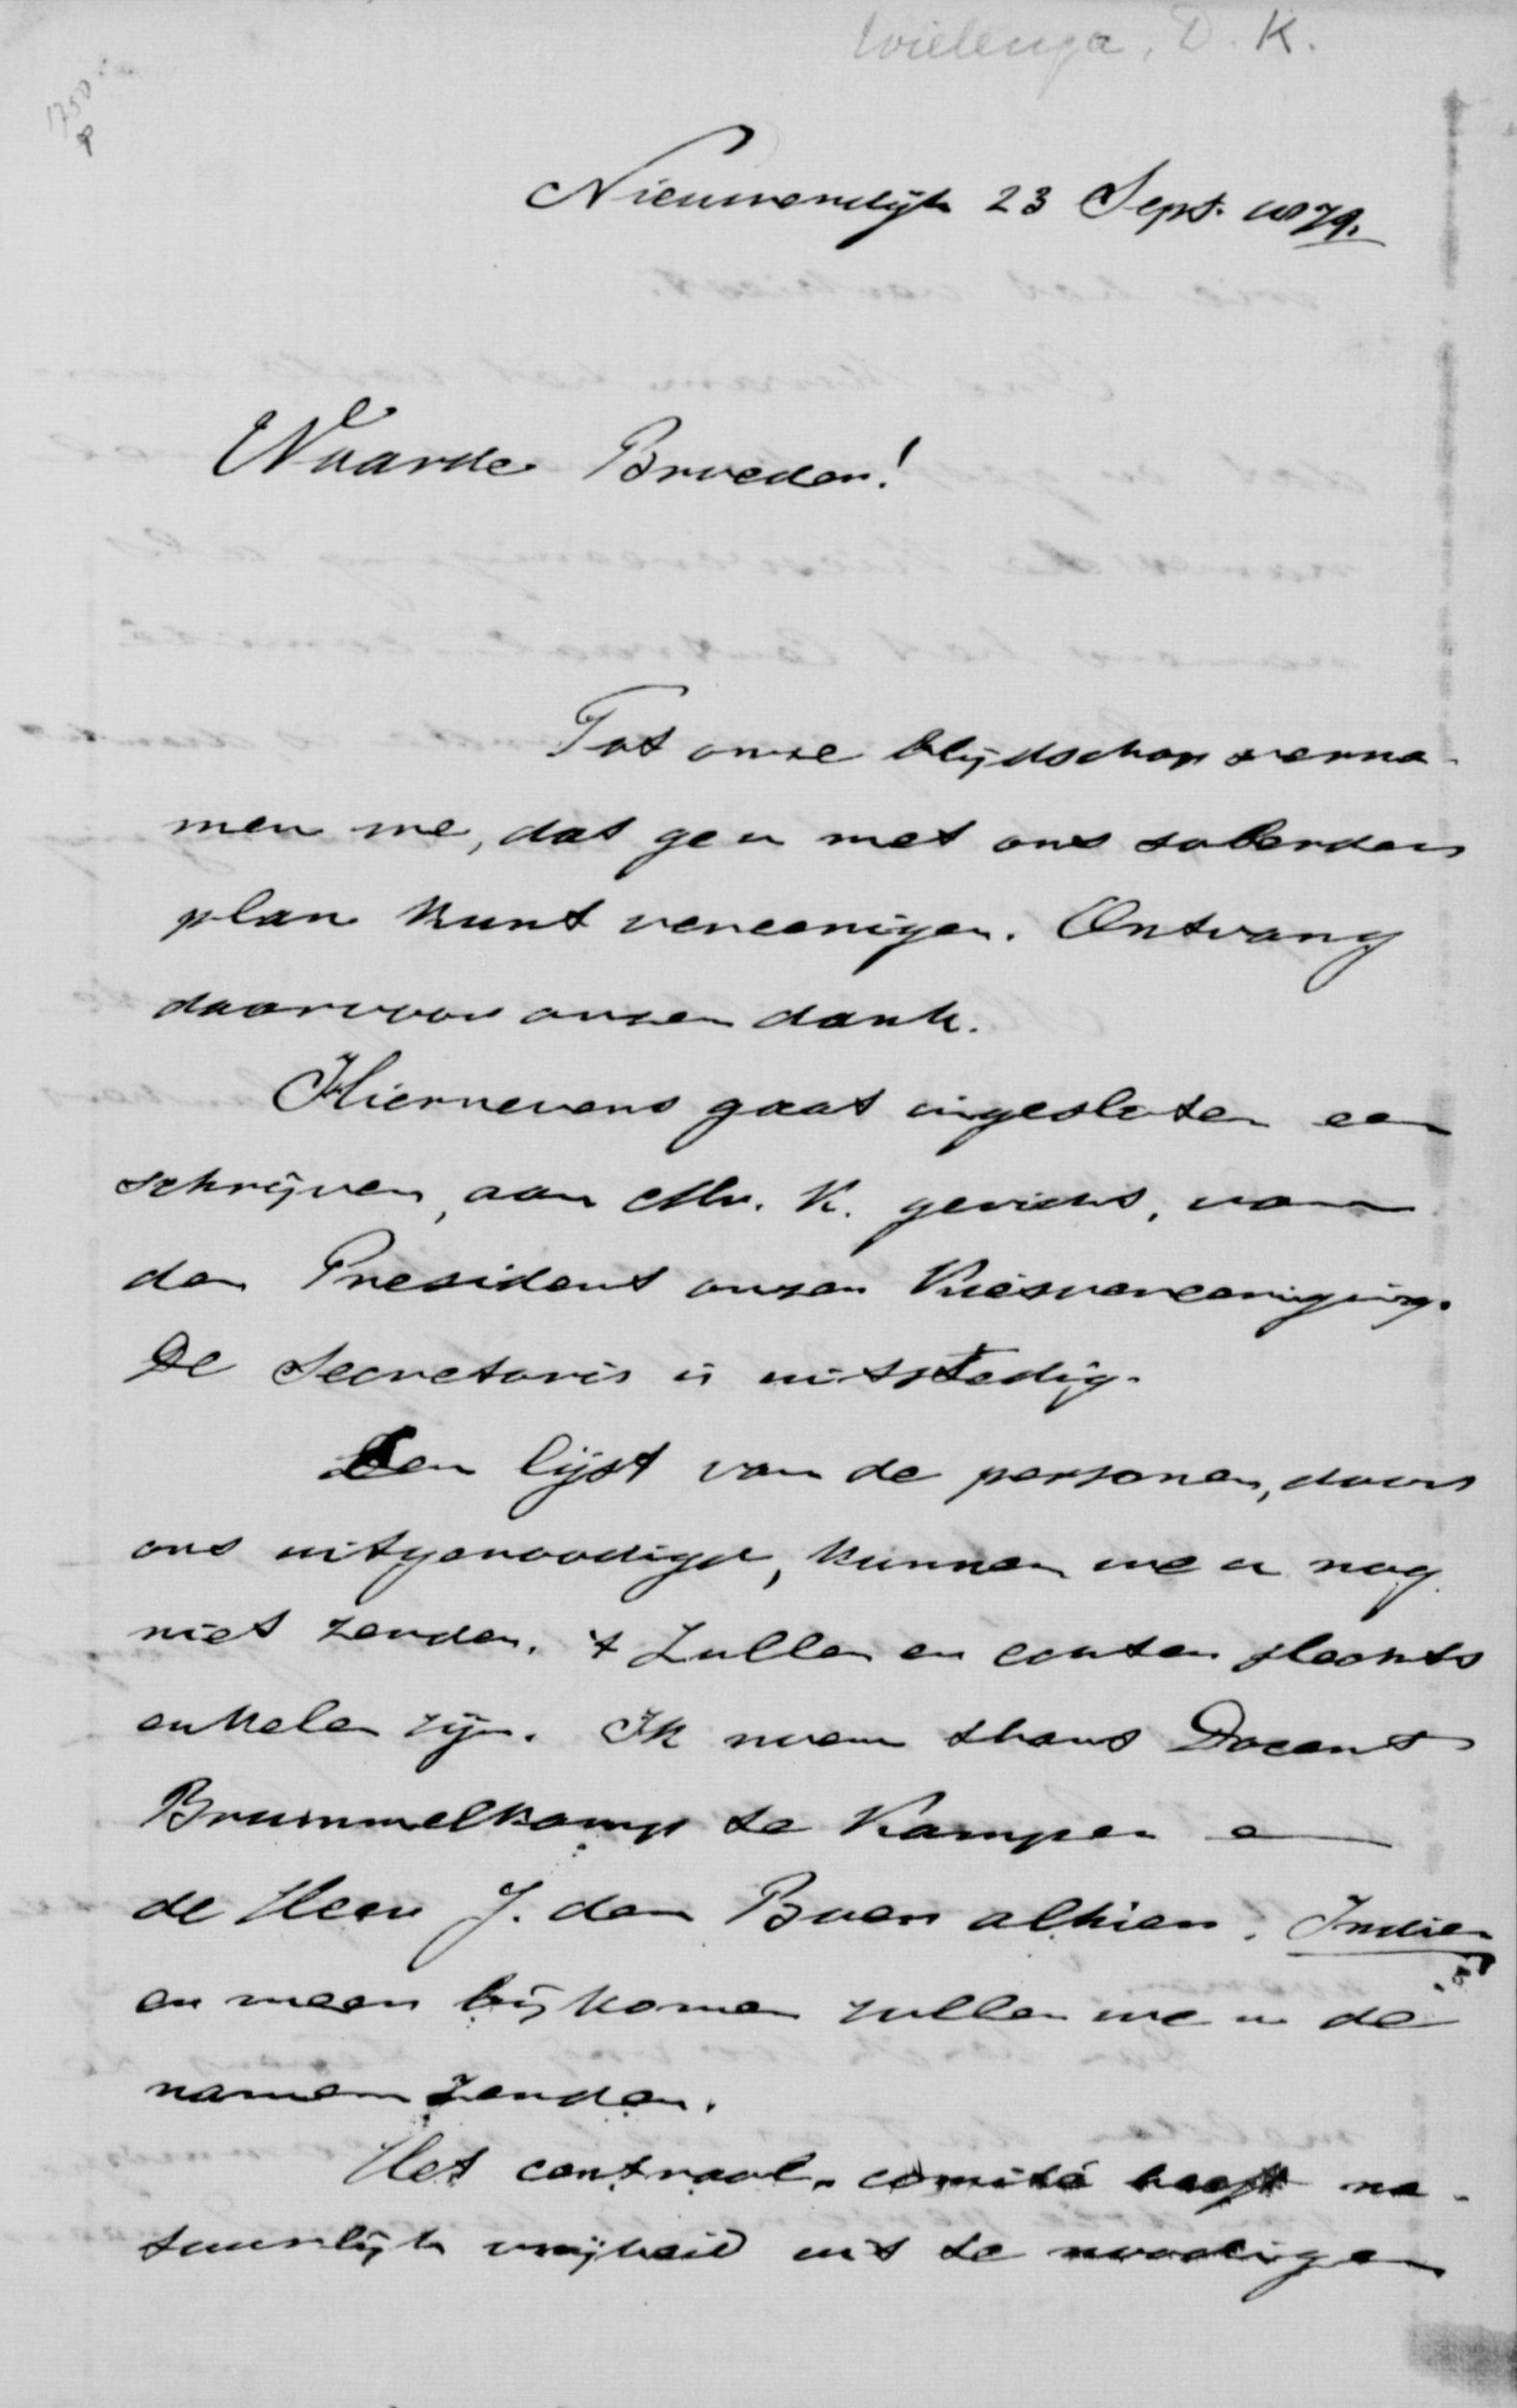 Wielenga, D. K.
1750
Nieuwendijk 23 Sept. 1879.
Waarde Broeder!
Tot onze blijdschap verna-
men we, dat ge u met ons
plan kunt vereenigen. Ontvang
daarvoor onzen dank.
Hiernevens gaat ingesloten een
schrijven, aan Mr. K. gericht, van
den President onzer Kiesvereeniging.
De Secretaris is uitstedig.
Een lijst van de personen, door
ons uitgenoodigd, kunnen we u nog
niet zenden. 't Zullen er echter slechts
enkelen zijn. Ik noem thans Docent
Brummelkamp te Kampen en
de Heer J. den Boer alhier. Indien
er meer bijkomen zullen we u de
namen zenden.
Het centraal-comité heeft na-
tuurlijk vrijheid uit te noodigen